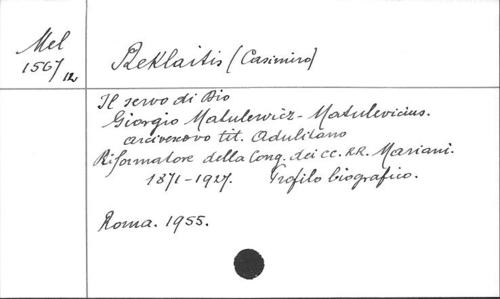 Mel
1567/12
Reklaitis (Casimiro)
Il servo di Dio
Giorgio Matulewicz-Matulevicius.
arcivescovo tit. Adulitano
Riformatore della Cong. dei CC. RR. Mariani.
1871-1927. Profilo biografico.
Roma. 1955.